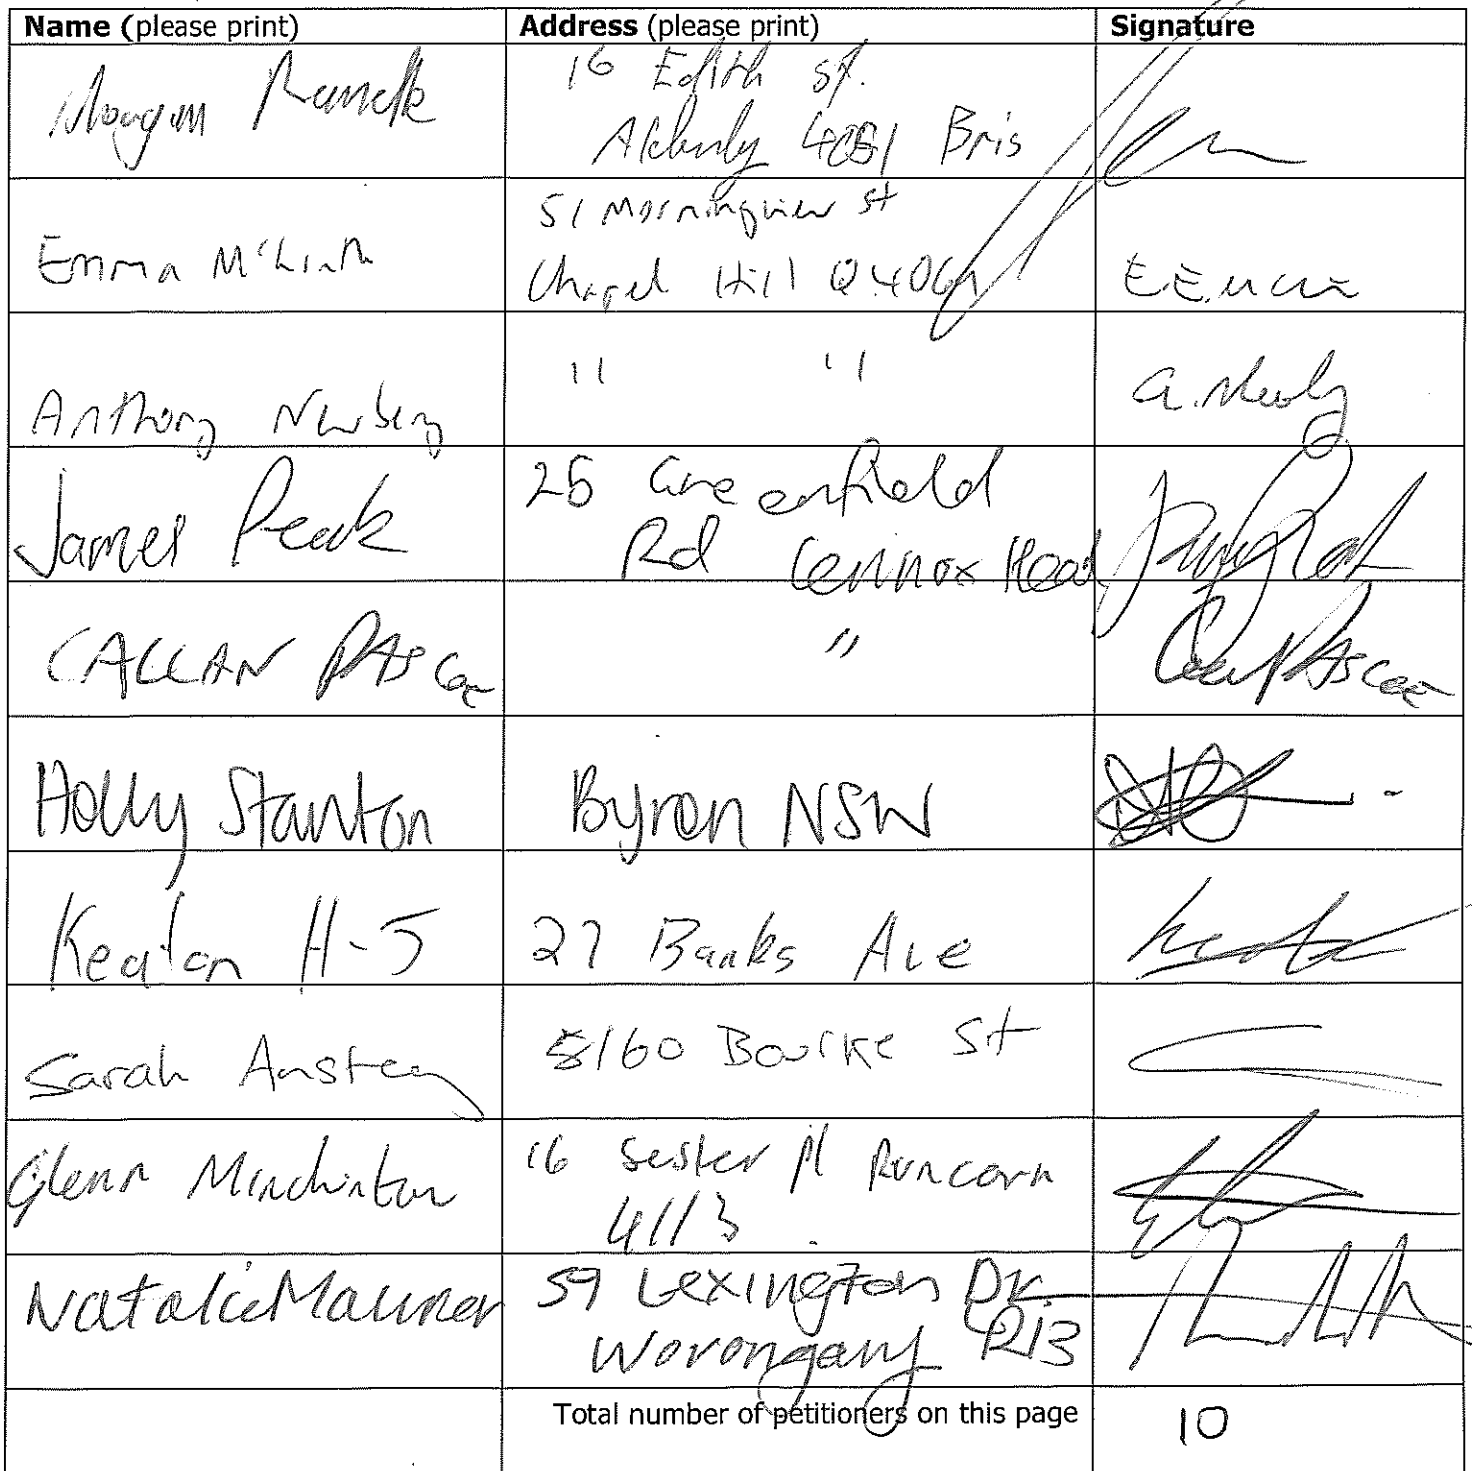 Name (please print) Address (please print) Signature
16 Edith st.
4051 Bris
51 Morningview st
Emma
Chapel Hill Q 4069
" "
Anthony Newbery
25 Greenfield
James Peak
Rd Lennox Head
CALLAN PAScoe "
Holly Stanton Byron NSW
Keaton H-J 27 Banks Ave
Sarah Anstey 5/60 Bourke St
Glenn Minchinton 16 Sester Pl Runcorn
4113
Natalie Maurer 59 Lexington Dr.
Worongary
Total number of petitioners on this page 10